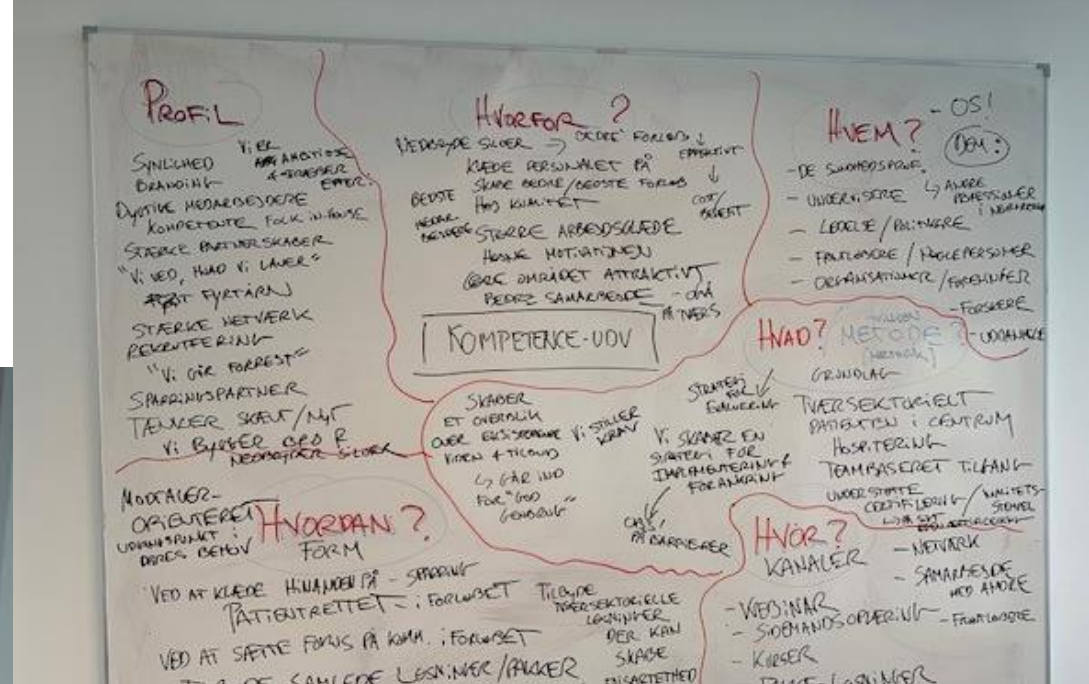 PROFIL
SYNLIGHED
BRANDING
Vi ER
AMBITIØSE
DYGTIGE MEDARBEJDERE
KOMPETENTE FOLK IN-HOUSE
STÆRKE PARTNERSKABER
"Vi VED, HVAD Vi LAVER"
FYRTÅRN
STÆRKE NETVÆRK
REKRUTTERING
"Vi GÅR FORREST"
SPARRINGSPARTNER
TÆNKER SKÆVT/NYT
Vi BYGGER BRO
NEDBRYDER SILOER
HVORFOR?
NEDBRYDE SILOER → BEDRE FORLØB
EFFEKTIVT
COST/
BENEFIT
KLÆDE PERSONALET PÅ
SKABE BEDRE/BEDSTE FORLØB
HØJ KVALITET
BEDSTE
MEDAR-
BEJDERE
STØRRE ARBEJDSGLÆDE
HØJNE MOTIVATIONEN
GØRE OMRÅDET ATTRAKTIVT
BEDRE SAMARBEJDE - OGSÅ
PÅ TVÆRS
KOMPETENCE-UDV
HVEM?
- OS!
DEM:
- DE SUNDHEDSPROF.
- UNDERVISERE
↳ ANDRE
PROFESSIONER
- LEDELSE/POLITIKERE
- FRONTLØBERE/NØGLEPERSONER
- ORGANISATIONER/FORENINGER
- FORSKERE
- UDDANNEDE
HVAD?
METODE?
(NETVÆRK)
GRUNDLAG
TVÆRSEKTORIELT
PATIENTEN i CENTRUM
HOSPITERING
TEAMBASERET TILGANG
UNDERSTØTTE
CERTIFICERING/KVALITETS-
STEMPEL
STRATEGI
FOR
EVALUERING
Vi SKABER EN
STRATEGI FOR
IMPLEMENTERING &
FORANKRING
OBS!
PÅ BARRIERER
Vi STILLER
KRAV
SKABER
ET OVERBLIK
OVER EKSISTERENDE
VIDEN & TILBUD
↳ GÅR IND
FOR "GOD
GENBRUG"
MODTAGER-
ORIENTERET
UDGANGSPUNKT i
DERES BEHOV
HVORDAN?
FORM
VED AT KLÆDE HINANDEN PÅ - SPARRING
PATIENTRETTET - i FORLØBET
VED AT SÆTTE FOKUS PÅ KOMM. i FORLØBET
SAMLEDE LØSNINGER/PAKKER
TILBYDE
TVÆRSEKTORIELLE
LØSNINGER
DER KAN
SKABE
ENSARTETHED
HVOR?
KANALER
- WEBINAR
- SIDEMANDSOPLÆRING
- KURSER
LØSNINGER
- NETVÆRK
- SAMARBEJDE
MED ANDRE
- FRONTLØBERE